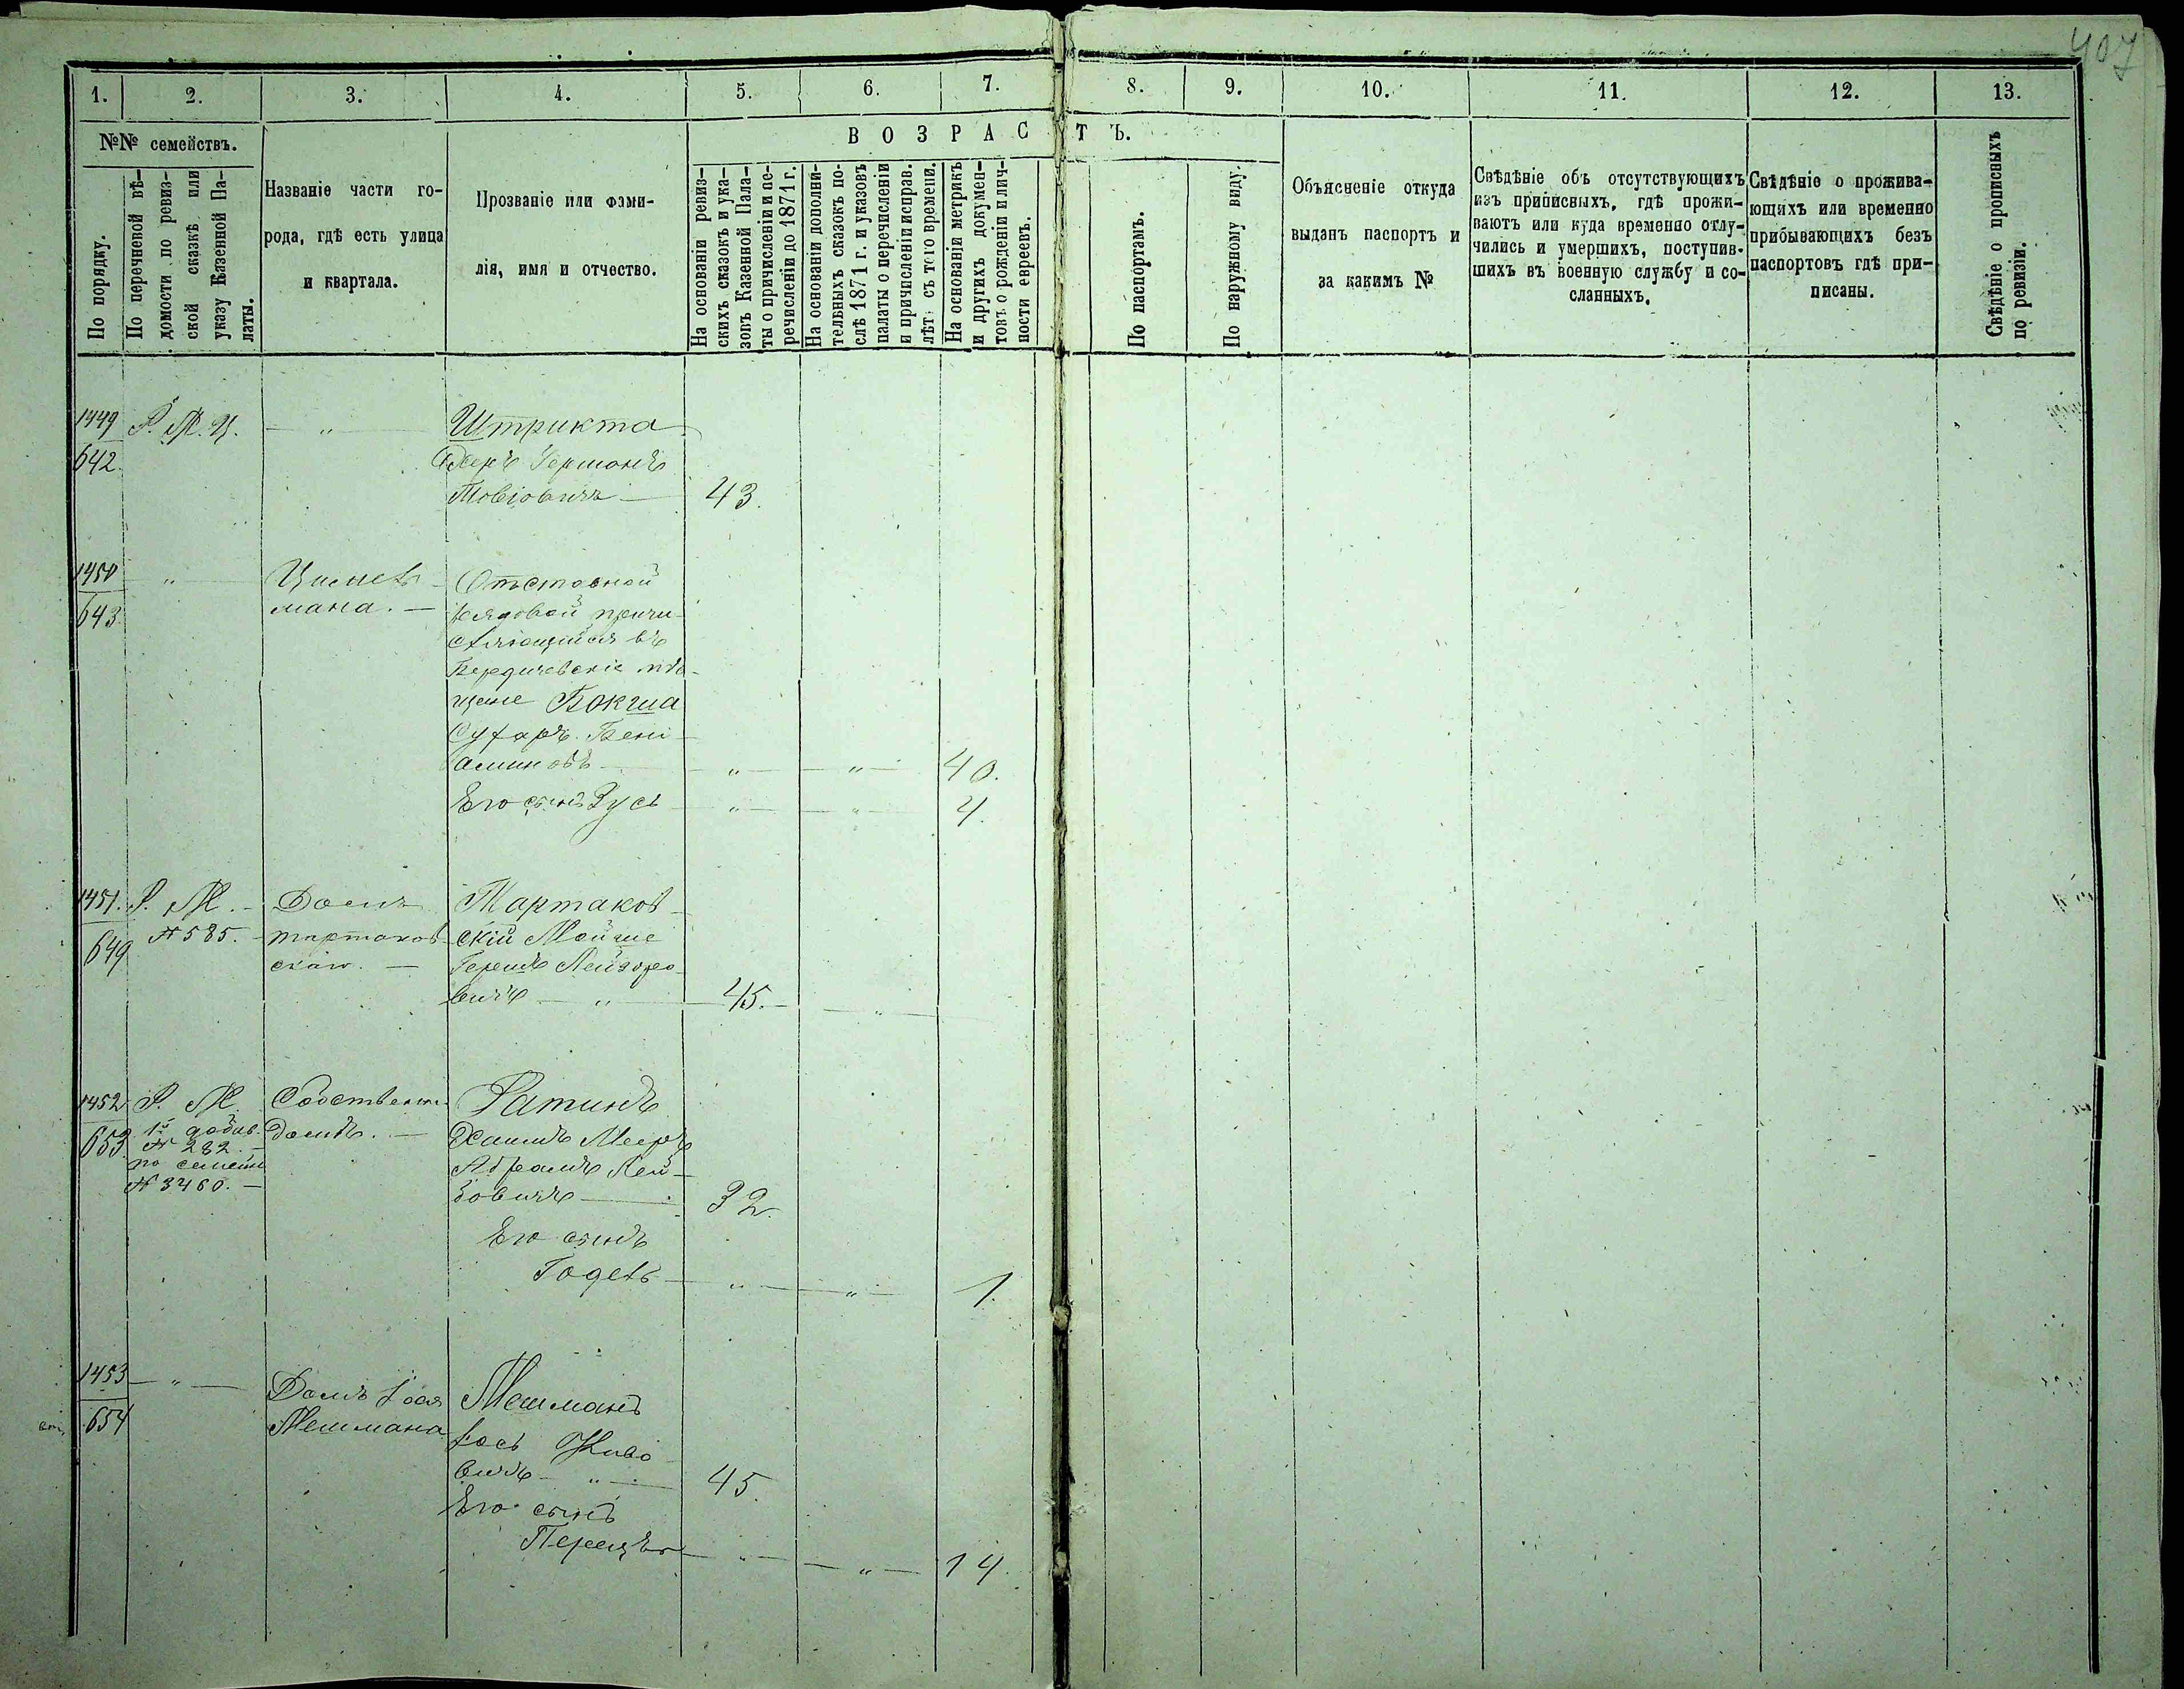 407
1. 2. 3. 4. 5. 6. 7. 8. 9. 10. 11. 12. 13.
№№ семействъ.
ВОЗРАСТЪ.
По порядку.
По перечневой вѣ-
домости по ревиз-
ской сказкѣ или
указу Казенной Па-
латы.
Названіе части го-
рода, гдѣ есть улица
и квартала.
Прозваніе или фами-
лія, имя и отчество.
На основаніи ревиз-
скихъ сказокъ и ука-
зовъ Казенной Пала-
ты о причисленіи и пе-
речисленіи до 1871 г.
На основаніи дополни-
тельныхъ сказокъ по-
слѣ 1871 г. и указовъ
палаты о перечисленіи
и причисленіи исправ.
лѣтъ съ того времени.
На основаніи метрикъ
и другихъ докумен-
товъ о рожденіи и лич-
ности евреевъ.
По паспортамъ.
По наружному виду.
Объясненіе откуда
выданъ паспортъ и
за какимъ №
Свѣдѣніе объ отсутствующихъ
изъ приписныхъ, гдѣ прожи-
ваютъ или куда временно отлу-
чились и умершихъ, поступив-
шихъ въ военную службу и со-
сланныхъ.
Свѣдѣніе о прожива-
ющихъ или временно
прибывающихъ безъ
паспортовъ гдѣ при-
писаны.
Свѣдѣніе о прописныхъ
по ревизіи.
1449 „ Штрикта
642 Гершонъ
Товіовичъ 43.
1450 „ Отставной
643 мана. рядовой причи-
сляющійся въ
Бердичевскіе мѣ-
щане Бокша
Сухаръ Бені-
аминовъ „ „ 40.
Его сынъ Зусь „ „ 4.
1451. Р. М. Домъ Тартаков-
649 № 585. тартаков- скій Мойше
скаго. Гершъ Лейзоро-
вичъ „ 45. „
1452 Р. М. Собственн. Ратинъ
653. 1й добав. домъ. Хаимъ Мееръ
№ 282.
по семейн. Абрамъ Лей-
№ 3460. зовичъ 32.
Его сынъ
Годель „ „ 1.
1453 „ Домъ Іося Мешманъ
654 Мешмана Іось
вичъ „ 45.
Его сынъ
Перецъ „ „ 14.